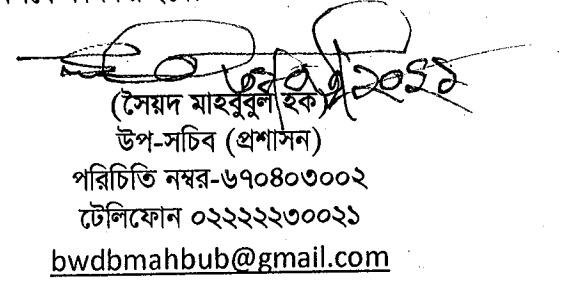 (সৈয়দ মাহবুবুল হক)
উপ-সচিব (প্রশাসন)
পরিচিতি নম্বর-৬৭০৪০৩০০২
টেলিফোন ০২২২২২৩০০২১
bwdbmahbub@gmail.com